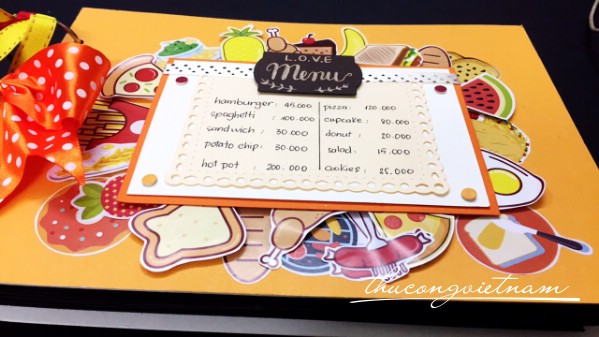 L.O.V.E
Menu
hamburger : 45.000
spaghetti : 100.000
sandwich : 30.000
potato chip : 30.000
hot pot : 200.000
pizza : 120.000
cupcake : 80.000
donut : 20.000
salad : 15.000
cookies : 25.000
thucongvietnam